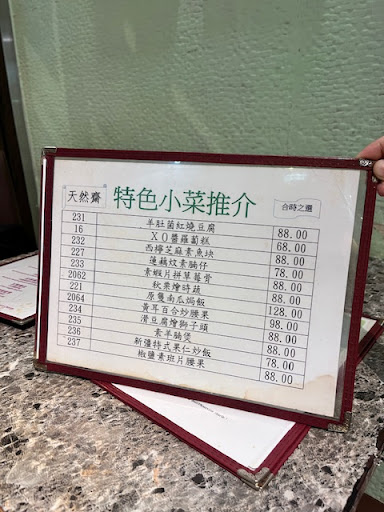 天然齋 特色小菜推介 合時之選
231 羊肚菌紅燒豆腐 88.00
16 XO醬蘿蔔糕 68.00
232 西檸芝麻素魚块 88.00
227 蓮藕炆素腩仔 78.00
233 素蝦片拼草莓骨 88.00
2062 秋栗燴時蔬 88.00
221 原隻南瓜焗飯 128.00
2064 黃耳百合炒腰果 98.00
234 滑豆腐燴獅子頭 88.00
235 素羊腩煲 88.00
236 新疆特式果仁炒飯 78.00
237 椒鹽素班片腰果 88.00